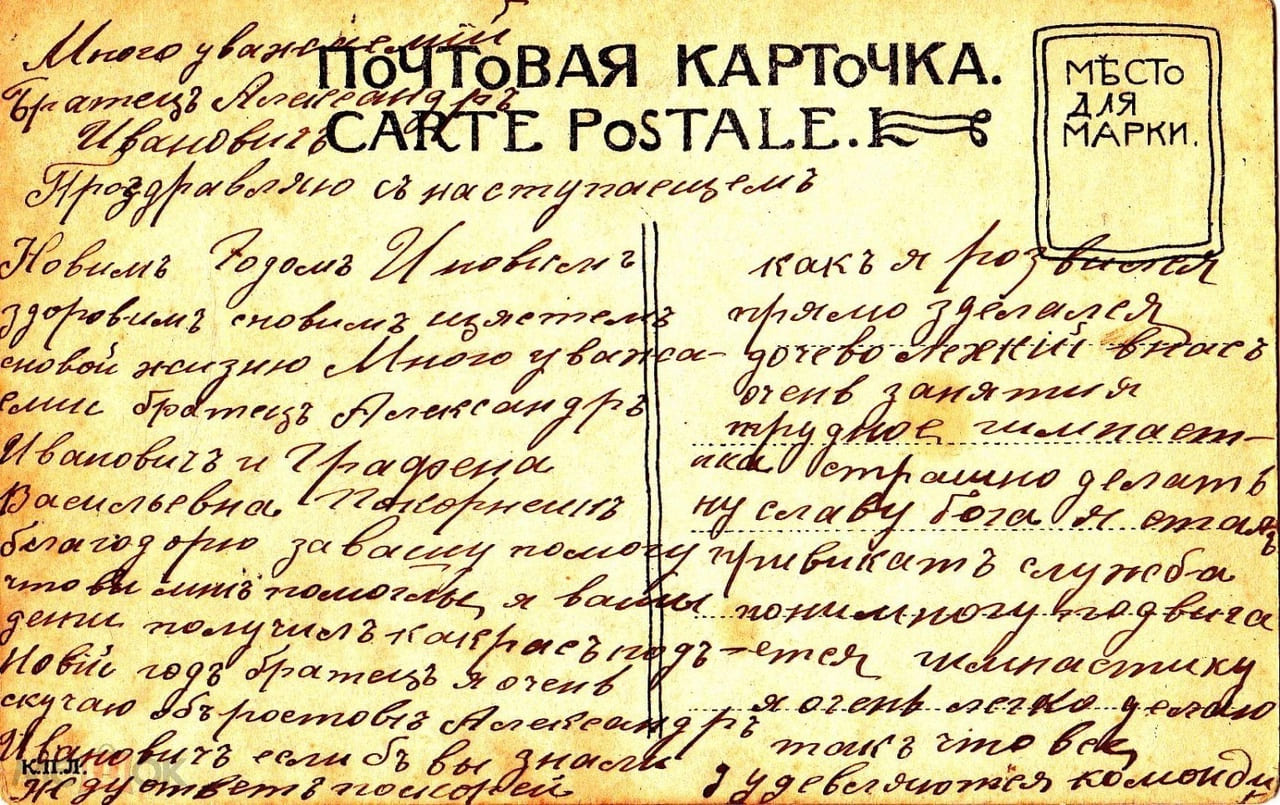 ПОЧТОВАЯ КАРТОЧКА.
CARTE POSTALE.
МѢСТО
ДЛЯ
МАРКИ.
Много уважаемій
братецъ Александръ
Ивановичъ
Проздравляю съ наступаещемъ
Новимъ Годомъ И новимъ
здоровимъ сновимъ щястемъ
сновой жизню Много уважа-
еми братецъ Александръ
Ивановичъ и Графена
Васильевна Покорнешъ
благодорю за вашу помогу
что вы мнѣ помоглы, я ваши
дени получилъ какрасъ подъ
Новій годъ братецъ я очень
скучаю объ ростовѣ Александръ
Ивановичъ если бъ вы знали
жду ответъ поскорей
какъ я розвился
прямо зделался
дочево лехкій внасъ
очень занятия
трудное гимнаст-
ика страшно делать
ну славу бога я сталъ
привикать служба
понимногу подвига
-ется гимнастику
я очень легко делаю
такъ что все
удевляются
К.П.Л.